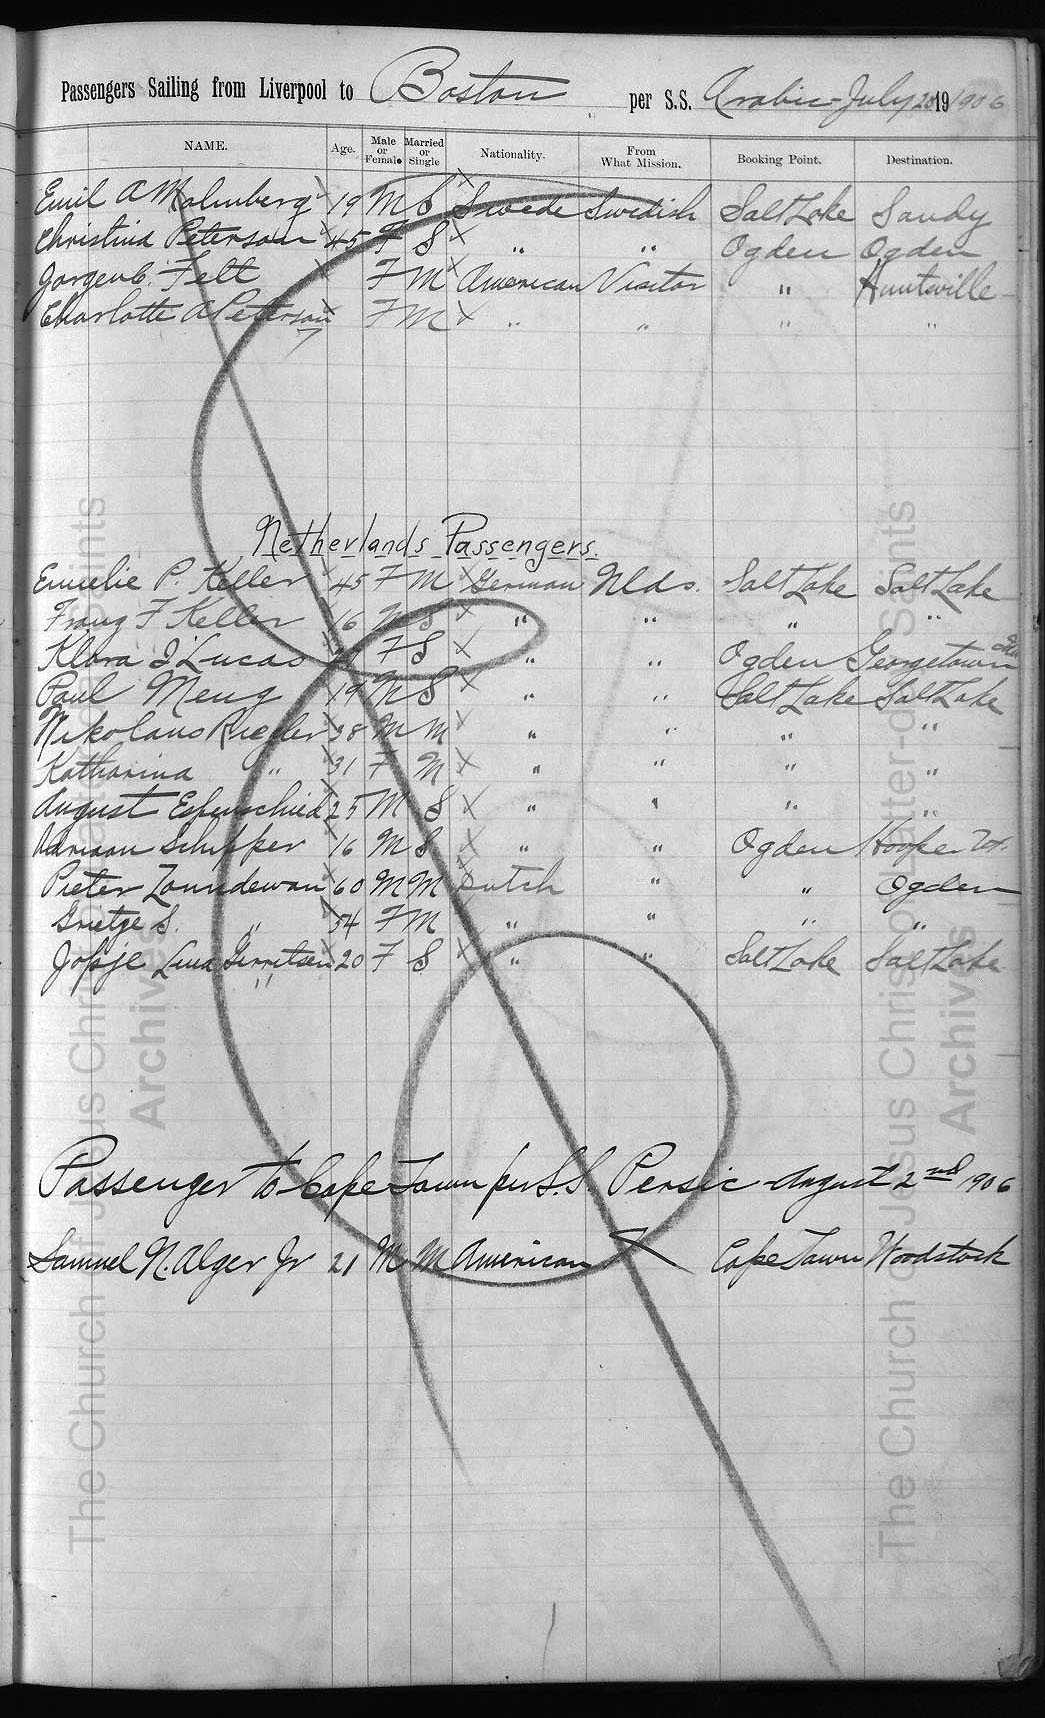 Passengers Sailing from Liverpool to Boston per S.S. Arabic July 20 19 1906
NAME. Age. Male or Female Married or Single Nationality. From What Mission. Booking Point. Destination.
Emil A Malmberg 19 M S Swede Swedish Salt Lake Sandy
Christina Peterson 45 F S " " Ogden Ogden
Jorgen C. Felt F M American Visitor " Huntsville
Charlotte A Peterson F M " " " "
Netherlands Passengers.
Emelie P. Keller 45 F M German Nlds. Salt Lake Salt Lake
Franz F Keller 16 M S " " " "
Klara I Lucas F S " " Ogden Georgetown
Paul Meng 19 M S " " Salt Lake Salt Lake
Nikolaus Riegler 28 M M " " " "
Katharina " 31 F M " " " "
August Espenschied 25 M S " " " "
Adriaan Schipper 16 M S " " Ogden Hooper
Pieter 60 M M Dutch " " Ogden
Grietge S. " 54 F M " " " "
Jopje Lena Gerritsen 20 F S " " Salt Lake Salt Lake
"
Passenger to Cape Town per S.S. Persic August 2nd 1906
Samuel N. Alger Jr 21 M M American Cape Town Woodstock
The Church of Jesus Christ of Latter-day Saints
Archives
The Church of Jesus Christ of Latter-day Saints
Archives